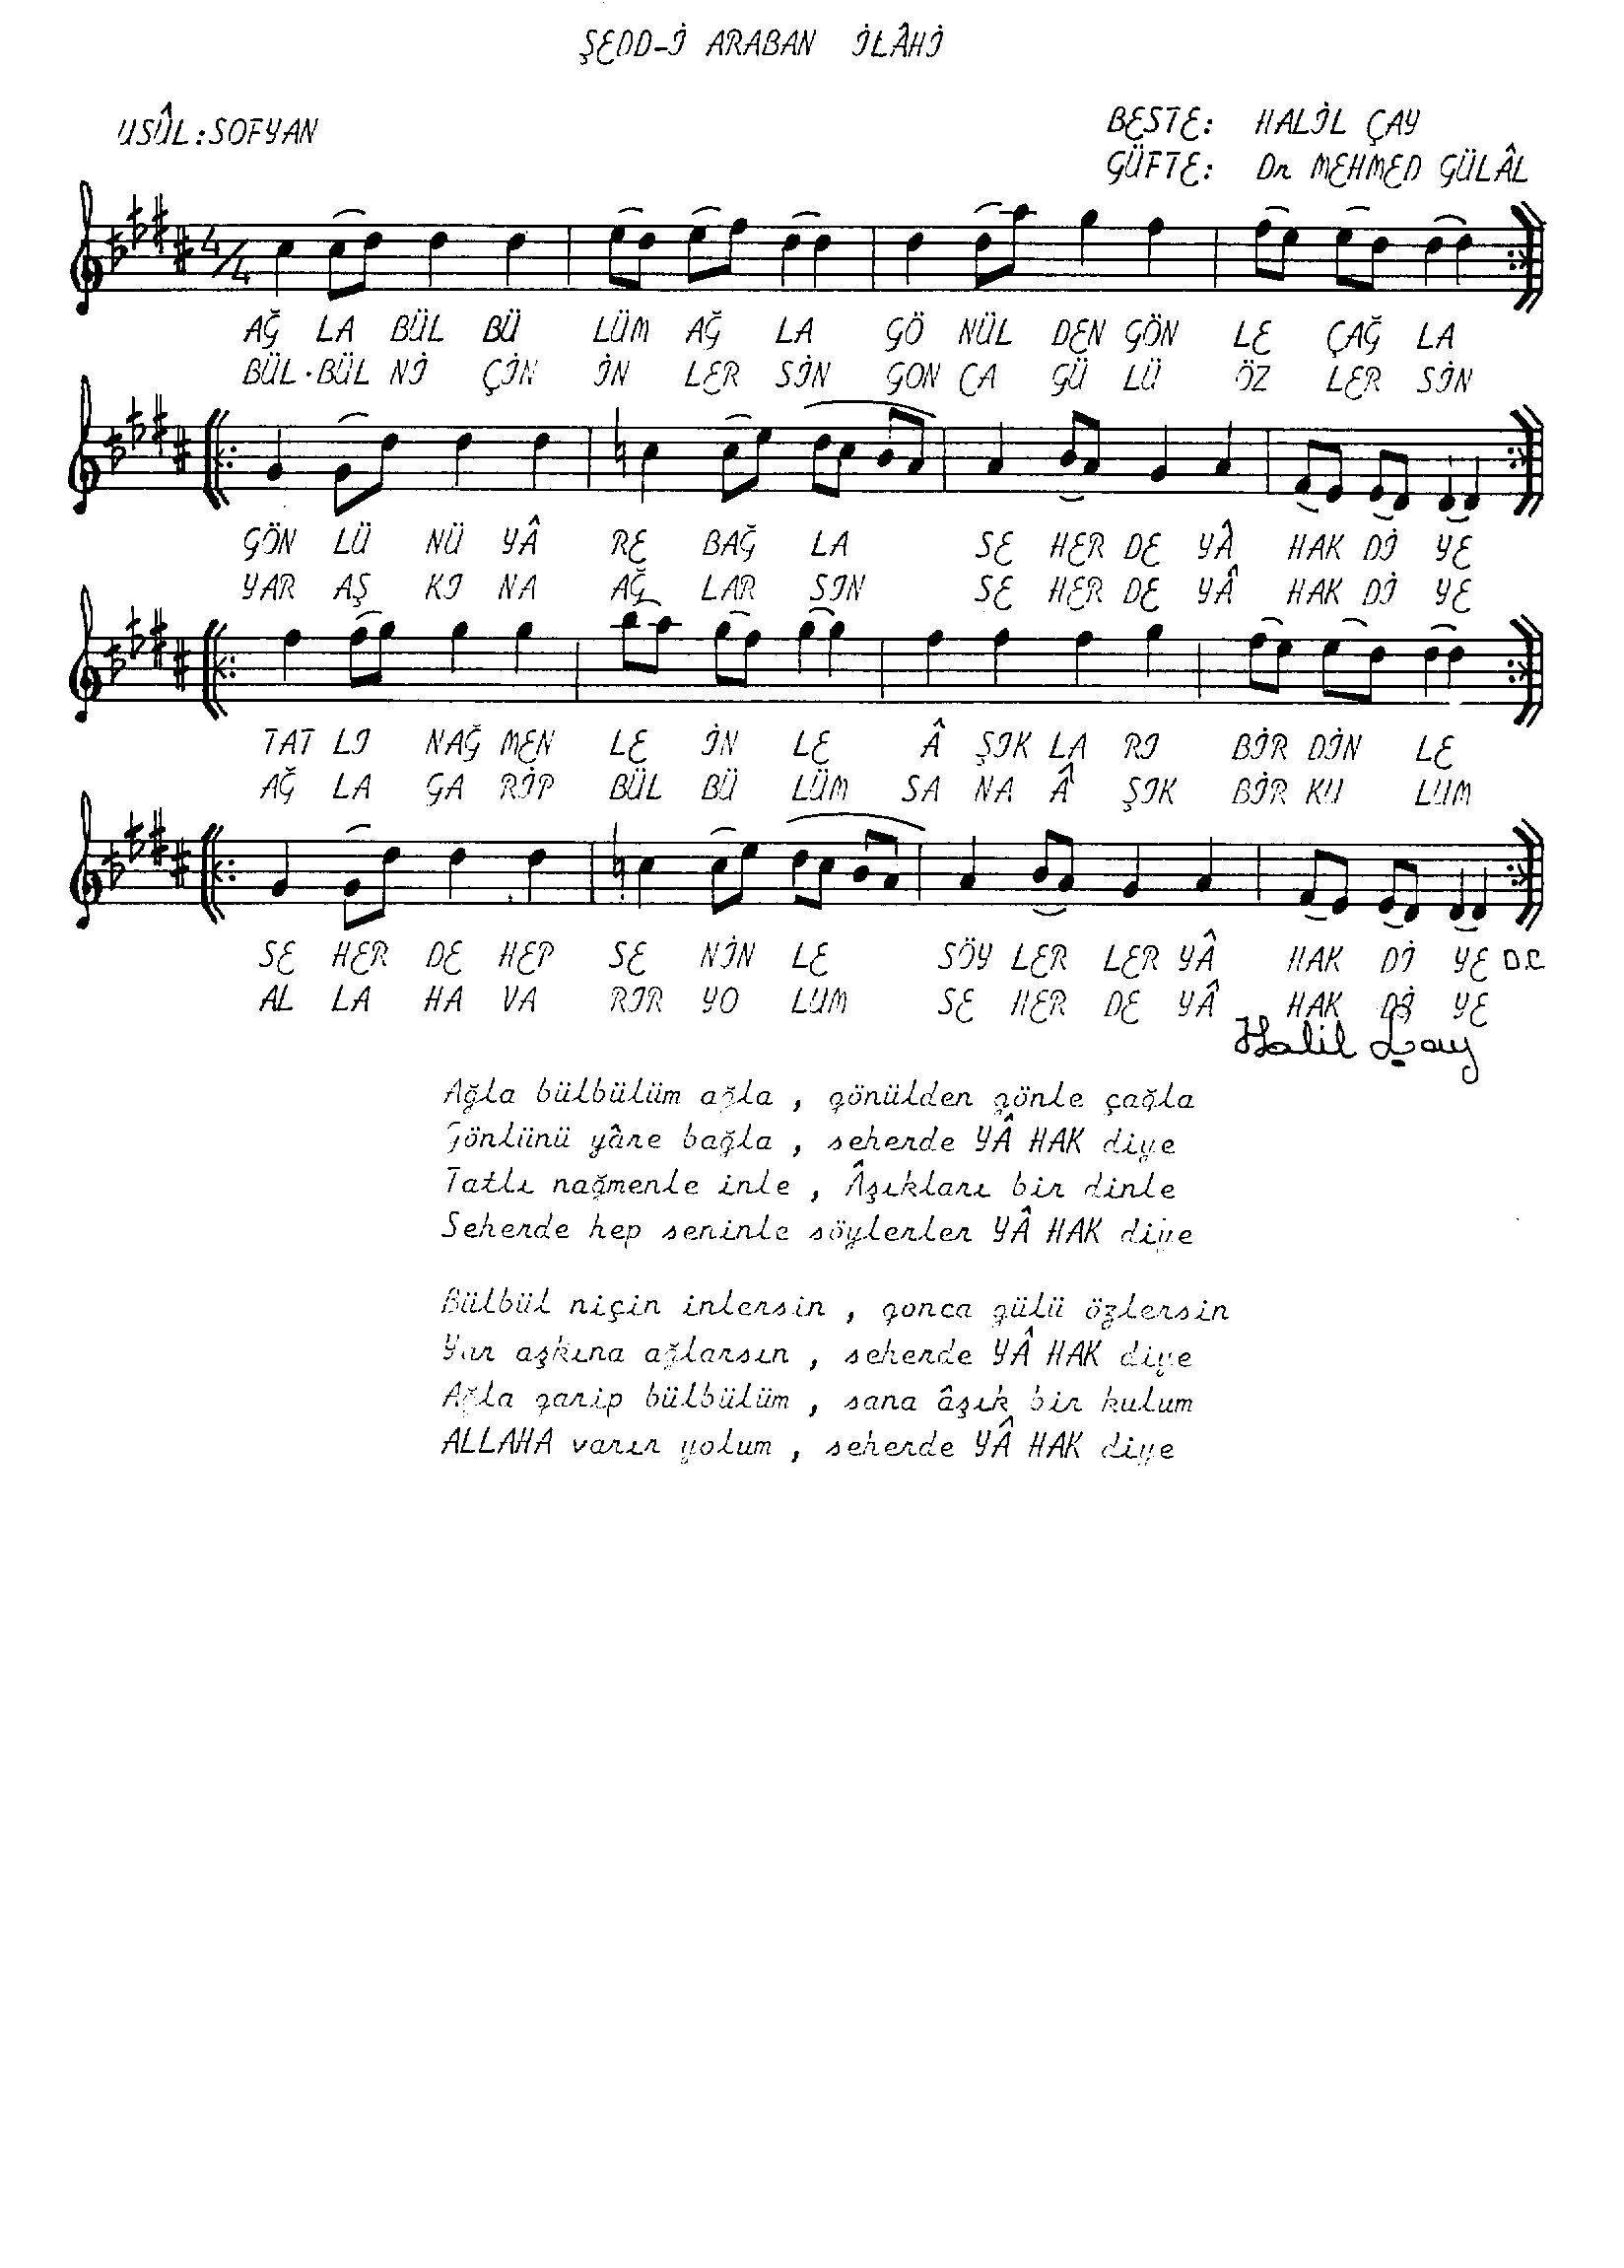 ŞEDD-İ ARABAN İLÂHİ
USÛL:SOFYAN
BESTE: HALİL ÇAY
GÜFTE: Dr MEHMED GÜLÂL
4/4
AĞ LA BÜL BÜ LÜM AĞ LA GÖ NÜL DEN GÖN LE ÇAĞ LA
BÜL·BÜL Nİ ÇİN İN LER SİN GON CA GÜ LÜ ÖZ LER SİN
GÖN LÜ NÜ YÂ RE BAĞ LA SE HER DE YÂ HAK Dİ YE
YAR AŞ KI NA AĞ LAR SIN SE HER DE YÂ HAK Dİ YE
TAT LI NAĞ MEN LE İN LE Â ŞIK LA RI BİR DİN LE
AĞ LA GA RİP BÜL BÜ LÜM SA NA Â ŞIK BİR KU LUM
SE HER DE HEP SE NİN LE SÖY LER LER YÂ HAK Dİ YE D.C
AL LA HA VA RIR YO LUM SE HER DE YÂ HAK Dİ YE
Halil Çay
Ağla bülbülüm ağla , gönülden gönle çağla
Gönlünü yâre bağla , seherde YÂ HAK diye
Tatlı nağmenle inle , Âşıkları bir dinle
Seherde hep seninle söylerler YÂ HAK diye
Bülbül niçin inlersin , gonca gülü özlersin
Yar aşkına ağlarsın , seherde YÂ HAK diye
Ağla garip bülbülüm , sana âşık bir kulum
ALLAHA varır yolum , seherde YÂ HAK diye